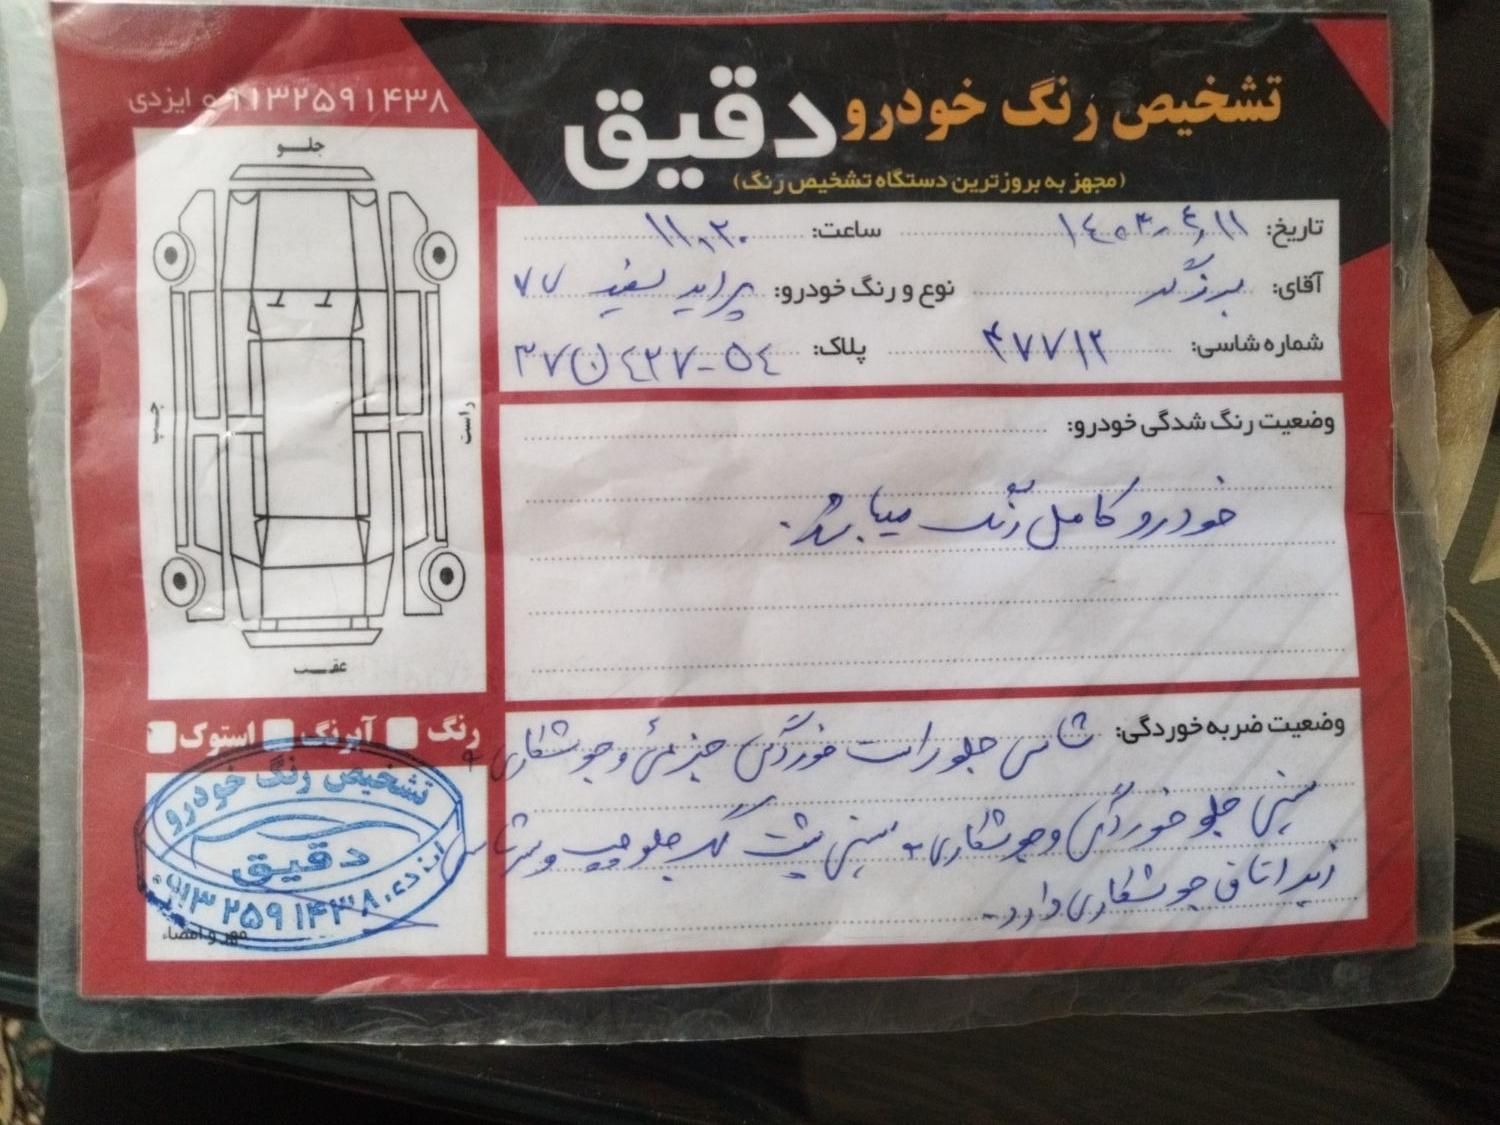 تشخیص رنگ خودرو دقیق
(مجهز به بروزترین دستگاه تشخیص رنگ)
۰۹۱۳۲۵۹۱۴۳۸ ایزدی
تاریخ: ۱۴۰۳-۴-۱۱ ساعت: ۱۱،۲۰
آقای: برزگر نوع و رنگ خودرو: پراید سفید ۷۷
شماره شاسی: ۴۷۷۱۲ پلاک: ۵۴-۴۲۷ن۳۷
وضعیت رنگ شدگی خودرو:
خودرو کامل رنگ میباشد.
وضعیت ضربه خوردگی: شاسی جلو راست خوردگی جزئی و جوشکاری
سینی جلو خوردگی و جوشکاری سینی پشت گلگیر جلو چپ و
زیر اتاق جوشکاری دارد.
جلو
چپ
راست
عقب
رنگ آبرنگ استوک
تشخیص رنگ خودرو
دقیق
ایزدی ۰۹۱۳۲۵۹۱۴۳۸
مهر و امضاء